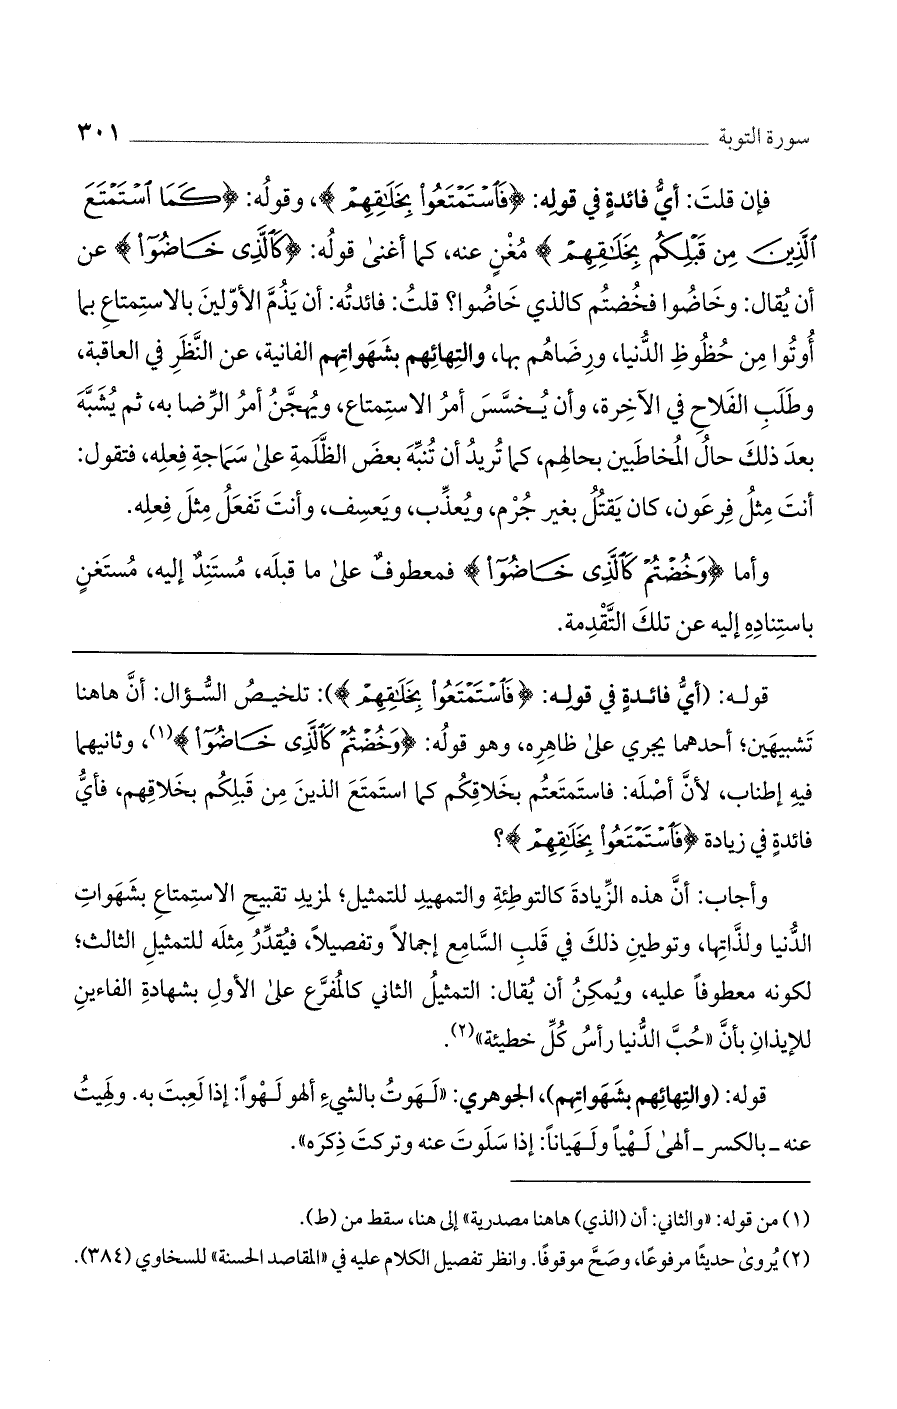 سورة التوبة ٣٠١
فإن قلتَ: أيُّ فائدةٍ في قولِه: ﴿فَٱسْتَمْتَعُوا۟ بِخَلَٰقِهِمْ﴾، وقولُه: ﴿كَمَا ٱسْتَمْتَعَ
ٱلَّذِينَ مِن قَبْلِكُم بِخَلَٰقِهِمْ﴾ مُغْنٍ عنه، كما أغنىٰ قولُه: ﴿كَٱلَّذِى خَاضُوٓا۟﴾ عن
أن يُقال: وخَاضُوا فخُضتُم كالذي خَاضُوا؟ قلتُ: فائدتُه: أن يَذُمَّ الأوّلينَ بالاستِمتاعِ بما
أُوتُوا مِن حُظُوظِ الدُّنيا، ورِضَاهُم بها، والتِهائهِم بشَهَواتِهم الفانية، عن النَّظَرِ في العاقبة،
وطَلَبِ الفَلاحِ في الآخِرة، وأن يُخسَّسَ أمرُ الاستِمتاع، ويُهجَّنُ أمرُ الرِّضا به، ثم يُشبَّهَ
بعدَ ذلكَ حالُ المُخاطَبين بحالِهم، كما تُريدُ أن تُنبِّهَ بعضَ الظَّلَمةِ علىٰ سَمَاجةِ فِعلِه، فتقول:
أنتَ مِثلُ فِرعَون، كان يَقتُلُ بغير جُرْم، ويُعذِّب، ويَعسِف، وأنتَ تَفعَلُ مِثلَ فِعلِه.
وأما ﴿وَخُضْتُمْ كَٱلَّذِى خَاضُوٓا۟﴾ فمعطوفٌ علىٰ ما قبلَه، مُستَنِدٌ إليه، مُستَغنٍ
باستِنادِهِ إليه عن تلكَ التَّقْدِمة.
قولـه: (أيُّ فائـدةٍ في قولِـه: ﴿فَٱسْتَمْتَعُوا۟ بِخَلَٰقِهِمْ﴾): تلخيـصُ السُّؤال: أنَّ هاهنا
تَشبيهَين؛ أحدهما يجري علىٰ ظاهِرِه، وهو قولُه: ﴿وَخُضْتُمْ كَٱلَّذِى خَاضُوٓا۟﴾(١)، وثانيهما
فيهِ إطناب، لأنَّ أصْلَه: فاستَمتَعتُم بخَلاقِكُم كما استَمتَعَ الذينَ مِن قَبلِكُم بخَلاقِهم، فأيُّ
فائدةٍ في زيادة ﴿فَٱسْتَمْتَعُوا۟ بِخَلَٰقِهِمْ﴾؟
وأجاب: أنَّ هذه الزِّيادةَ كالتوطِئةِ والتمهيدِ للتمثيل؛ لمزيدِ تقبيحِ الاستِمتاعِ بشَهَواتِ
الدُّنيا ولذَّاتِها، وتوطينِ ذلكَ في قَلبِ السَّامِعِ إجمالاً وتفصيلاً، فيُقدَّرُ مِثلَه للتمثيلِ الثالث؛
لكونه معطوفاً عليه، ويُمكِنُ أن يُقال: التمثيلُ الثاني كالمُفرَّعِ علىٰ الأولِ بشهادةِ الفاءينِ
للإيذانِ بأنَّ «حُبَّ الدُّنيا رأسُ كُلِّ خطيئة»(٢).
قوله: (والتِهائهِم بشَهَواتِهم)، الجوهري: «لَـهَوتُ بالشيءِ ألهو لَـهْواً: إذا لَعِبتَ به. ولَهِيتُ
عنه ـ بالكسر ـ ألهىٰ لَـهْياً ولَـهَياناً: إذا سَلَوتَ عنه وتركتَ ذِكرَه».
(١) من قوله: «والثاني: أن (الذي) هاهنا مصدرية» إلى هنا، سقط من (ط).
(٢) يُروىٰ حديثًا مرفوعًا، وصَحَّ موقوفًا. وانظر تفصيل الكلام عليه في «المقاصد الحسنة» للسخاوي (٣٨٤).